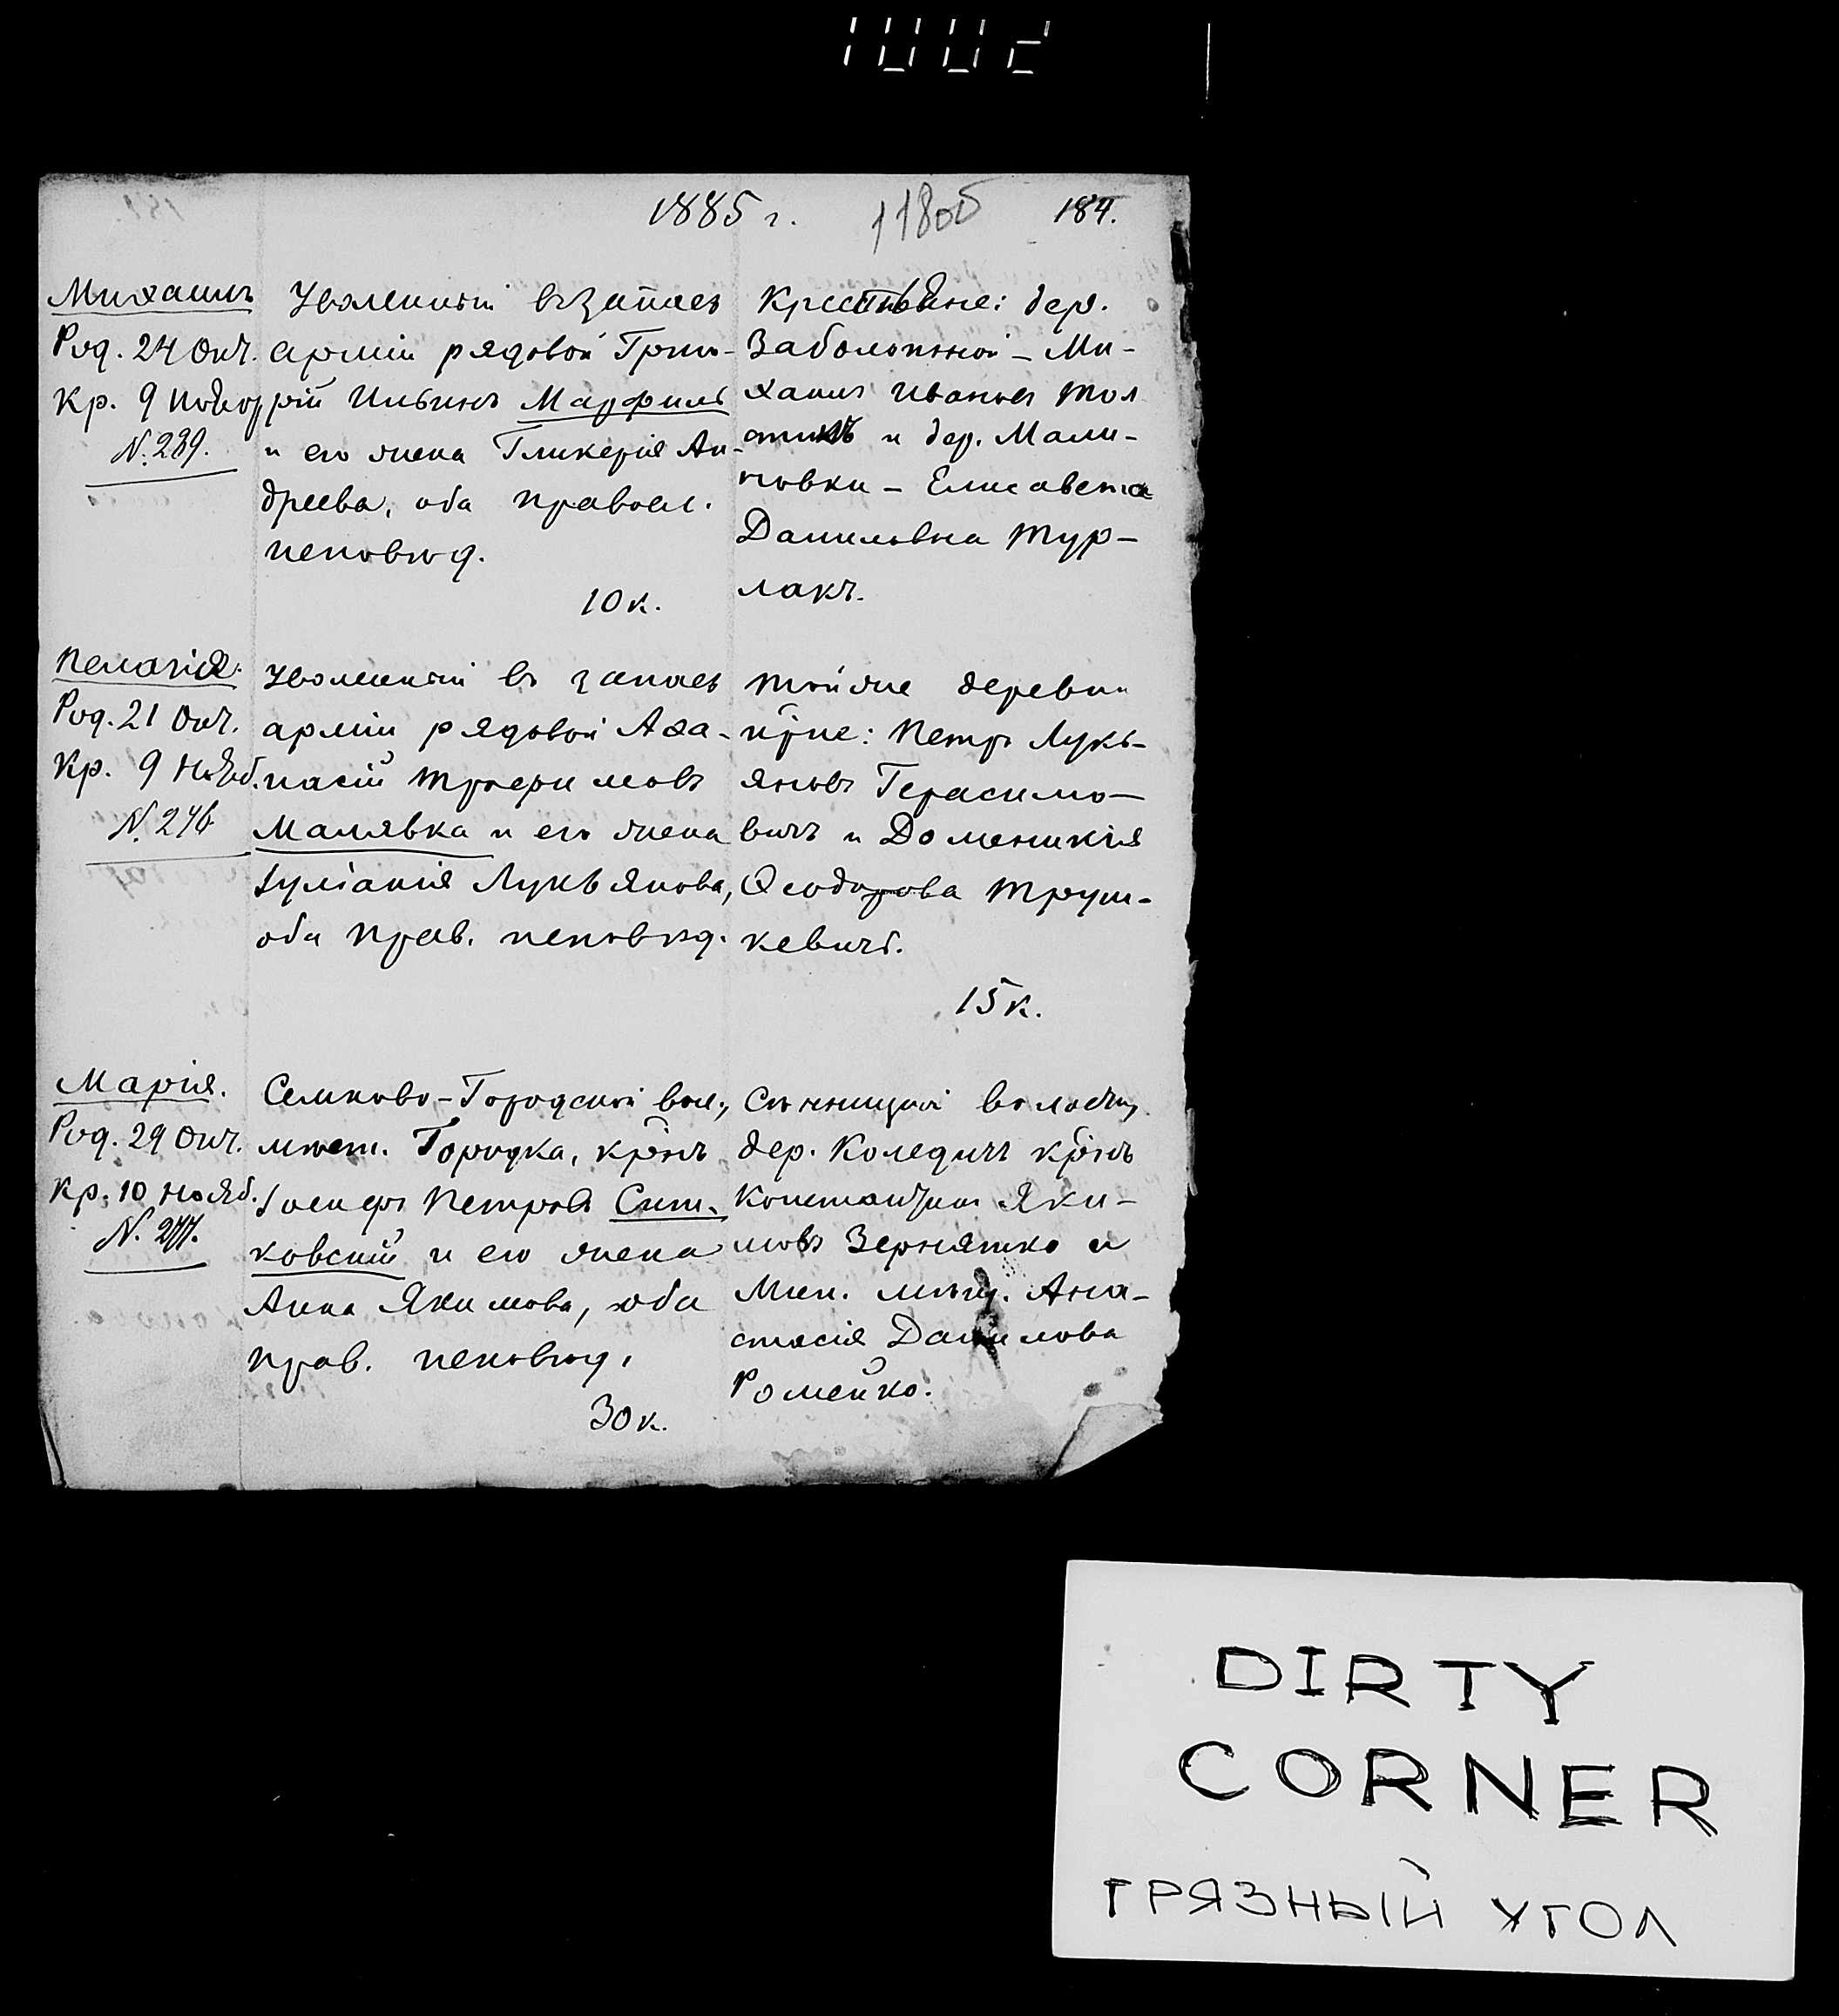 1002
1885 г. 11805 184.
Михаилъ
Род. 24 Окт.
Кр. 9 Ноябр
N. 239.
Уволенный въ запасъ
арміи рядовой Григо-
рій Ильинъ
и его жена Гликерія Ан-
дреева, оба правосл.
исповѣд.
10 к.
Крестьяне: дер.
Заболотной - Ми-
хаилъ Ивановъ Тол
стикъ и дер. Мали-
новки - Елисавета
Даниловна Тур-
лакъ.
Пелагія.
Род. 21 Окт.
Кр. 9 Нояб.
N. 246
Уволенный въ запасъ
арміи рядовой Аѳа-
насій Трофимовъ
Малявка и его жена
Іуліанія Лукьянова,
оба прав. исповѣд.
Тойже деревни
кр̃не: Петръ Лукь-
яновъ Герасимо-
вичъ и Доменикія
Ѳеодорова Труш-
кевичъ.
15 к.
Марія.
Род. 29 Окт.
Кр. 10 Нояб.
N. 277.
Семково-Городской вол.,
мѣст. Городка, кр̃нъ
Іосифъ Петровъ Сит-
ковскій и его жена
Анна Якимова, оба
прав. исповѣд.
30 к.
Сѣнницкой волости
дер. Коледичъ кр̃нъ
Константинъ Яки-
мовъ Зернятко и
Мин. мѣщ. Ана-
стасія Данилова
Ромейко.
DIRTY
CORNER
ГРЯЗНЫЙ УГОЛ